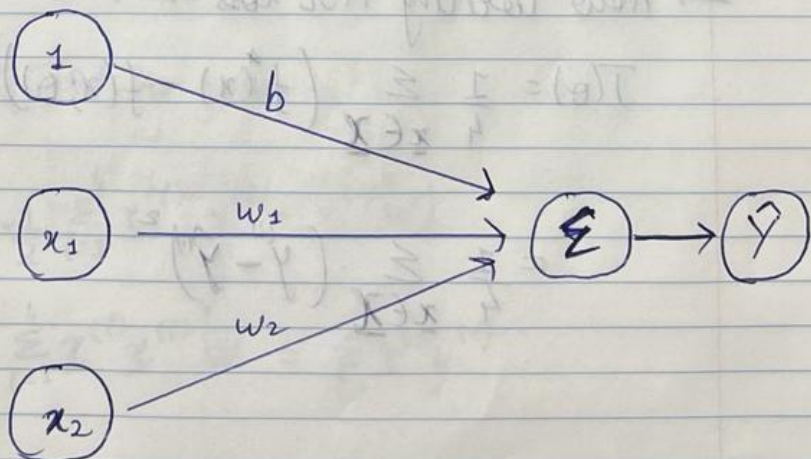 1
b
x₁
w₁
Σ
Ŷ
w₂
x₂